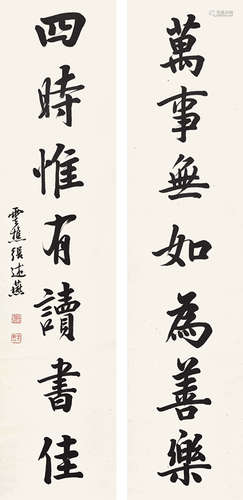 萬事無如為善樂
四時惟有讀書佳
雲樵張述燕